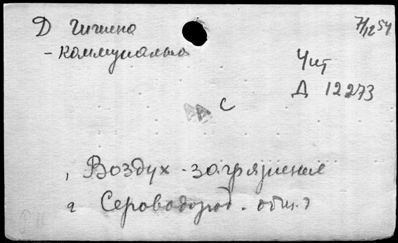 Д Гигиена 7/12 54
- коммунальна
Чит
Д 12273
С
, Воздух - загрязнение
2 Сероводород - общ.